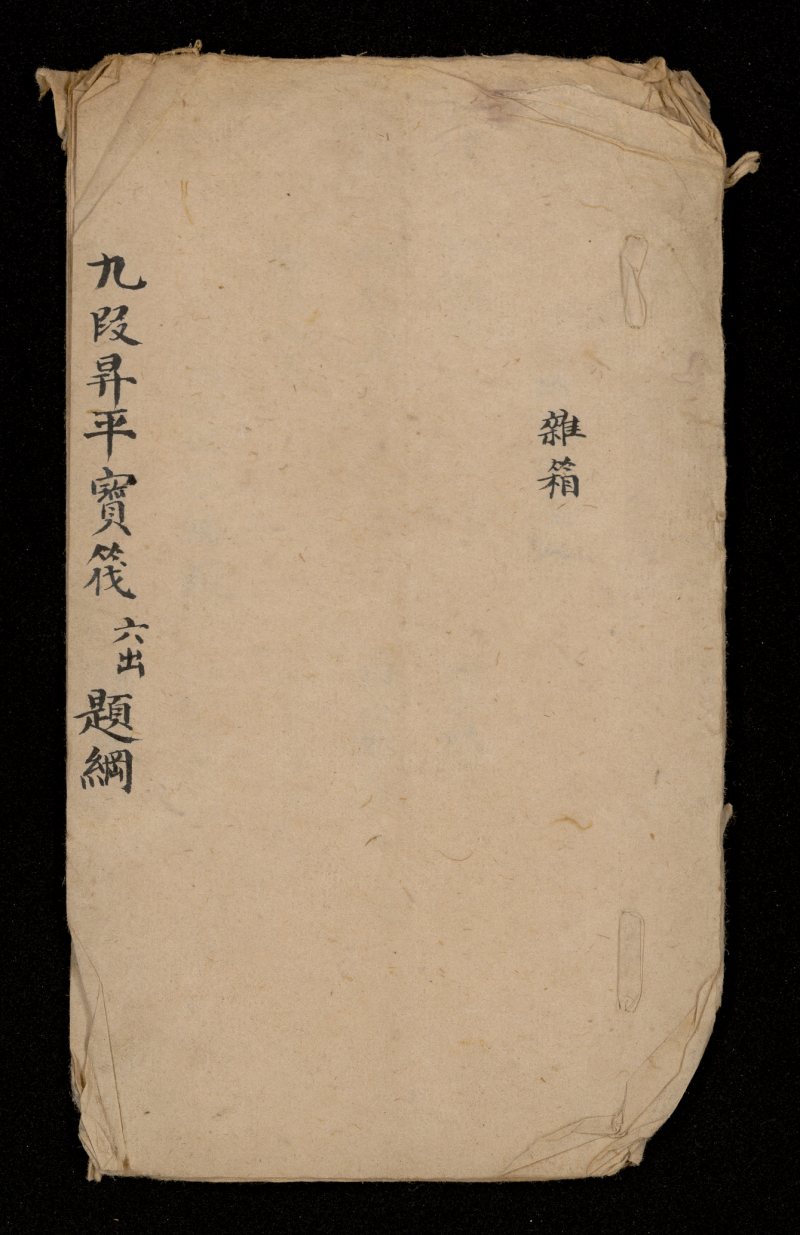 雜箱
九段昇平寶筏六出題綱